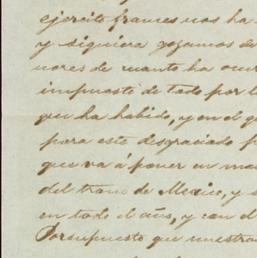 ejercito frances nos ha
y siquiera gozamos de
nores de cuanto ha ocur
impuesto de todo por l
que ha habido, y en el q
para este desgraciado p
que va á poner en man
del trono de Mexico, y a
en todo el año, y con el
Presupuesto que nuestra